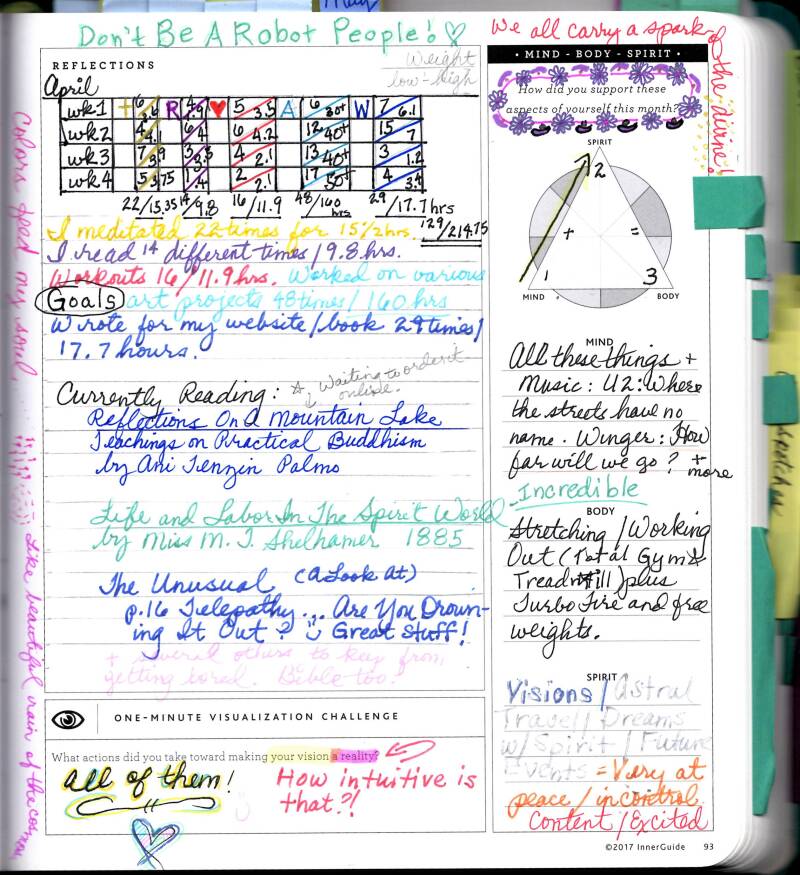 May
Don't Be A Robot People! ♡
We all carry a spark of the divine!
REFLECTIONS
Weight
low-high
April
wk1 + 6 R 4 ♥ 5 3.5 A 6 30+ W 7 6.1
wk2 4 4.1 6 4 6 4.2 12 40+ 15 7
wk3 7 3 4 2.1 13 40+ 3 1.2
wk4 5 3.75 4 2 2.1 17 50+ 4 3.4
22/15.35 14/9.8 16/11.9 48/160 hrs 29/17.7 hrs
129/214.75
I meditated 22 times for 15 1/2 hrs.
I read 14 different times/9.8 hrs.
Workouts 16/11.9 hrs. Worked on various
Goals art projects 48 times/160 hrs
Wrote for my website/book 29 times/
17.7 hours.
Currently Reading: ☆ Waiting to order it
↓ online.
Reflections On A Mountain Lake
Teachings on Practical Buddhism
by Ani Tenzin Palmo
Life and Labor In The Spirit World
by Miss M. T. Shelhamer 1885
The Unusual (A Look At)
p.16 Telepathy... Are You Drown-
ing It Out? Great Stuff!
+ several others to keep from
getting bored. Bible too!
ONE-MINUTE VISUALIZATION CHALLENGE
What actions did you take toward making your vision a reality?
all of them!
How intuitive is
that?!
Colors feed my soul. Like beautiful rain of the cosmos
• MIND - BODY - SPIRIT •
How did you support these
aspects of yourself this month?
SPIRIT
2
+ =
1 3
MIND BODY
MIND
All these things +
Music: U2: Where
the streets have no
name. Winger: How
far will we go? + more
Incredible
BODY
Stretching/Working
Out (Total Gym &
Treadmill) plus
Turbo Fire and free
weights.
SPIRIT
Visions/Astral
Travel/Dreams
w/Spirit/Future
Events = Very at
peace/in control
Content/Excited
©2017 InnerGuide 93
sketches